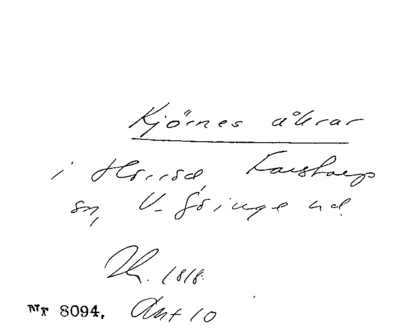 Kjörnes åkrar
i Hörröd, Farstorp
sn, V. Göinge hd.
Th. 1818.
Nr 8094. Ant 10